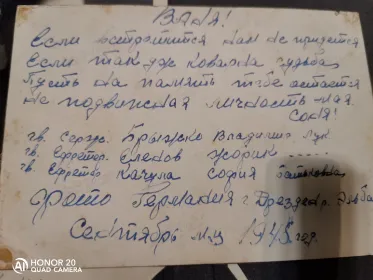 ВАНЯ!
Если встретится нам не придется
Если так уж коварна судьба
Пусть на память тебе остается
Не подвижная личность моя.
СОНЯ!
гв. Сержю. Брыжко Владимир Лук
гв. Ефрейтор. Еленов Жорик
гв. Ефрейтор София
Фото Германия г. Дрезден р. Эльба
Сентябрь м-ц 1945 год.
HONOR 20
AI QUAD CAMERA